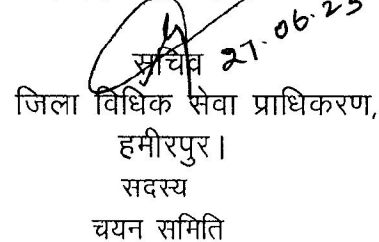 27.06.23
सचिव
जिला विधिक सेवा प्राधिकरण,
हमीरपुर।
सदस्य
चयन समिति